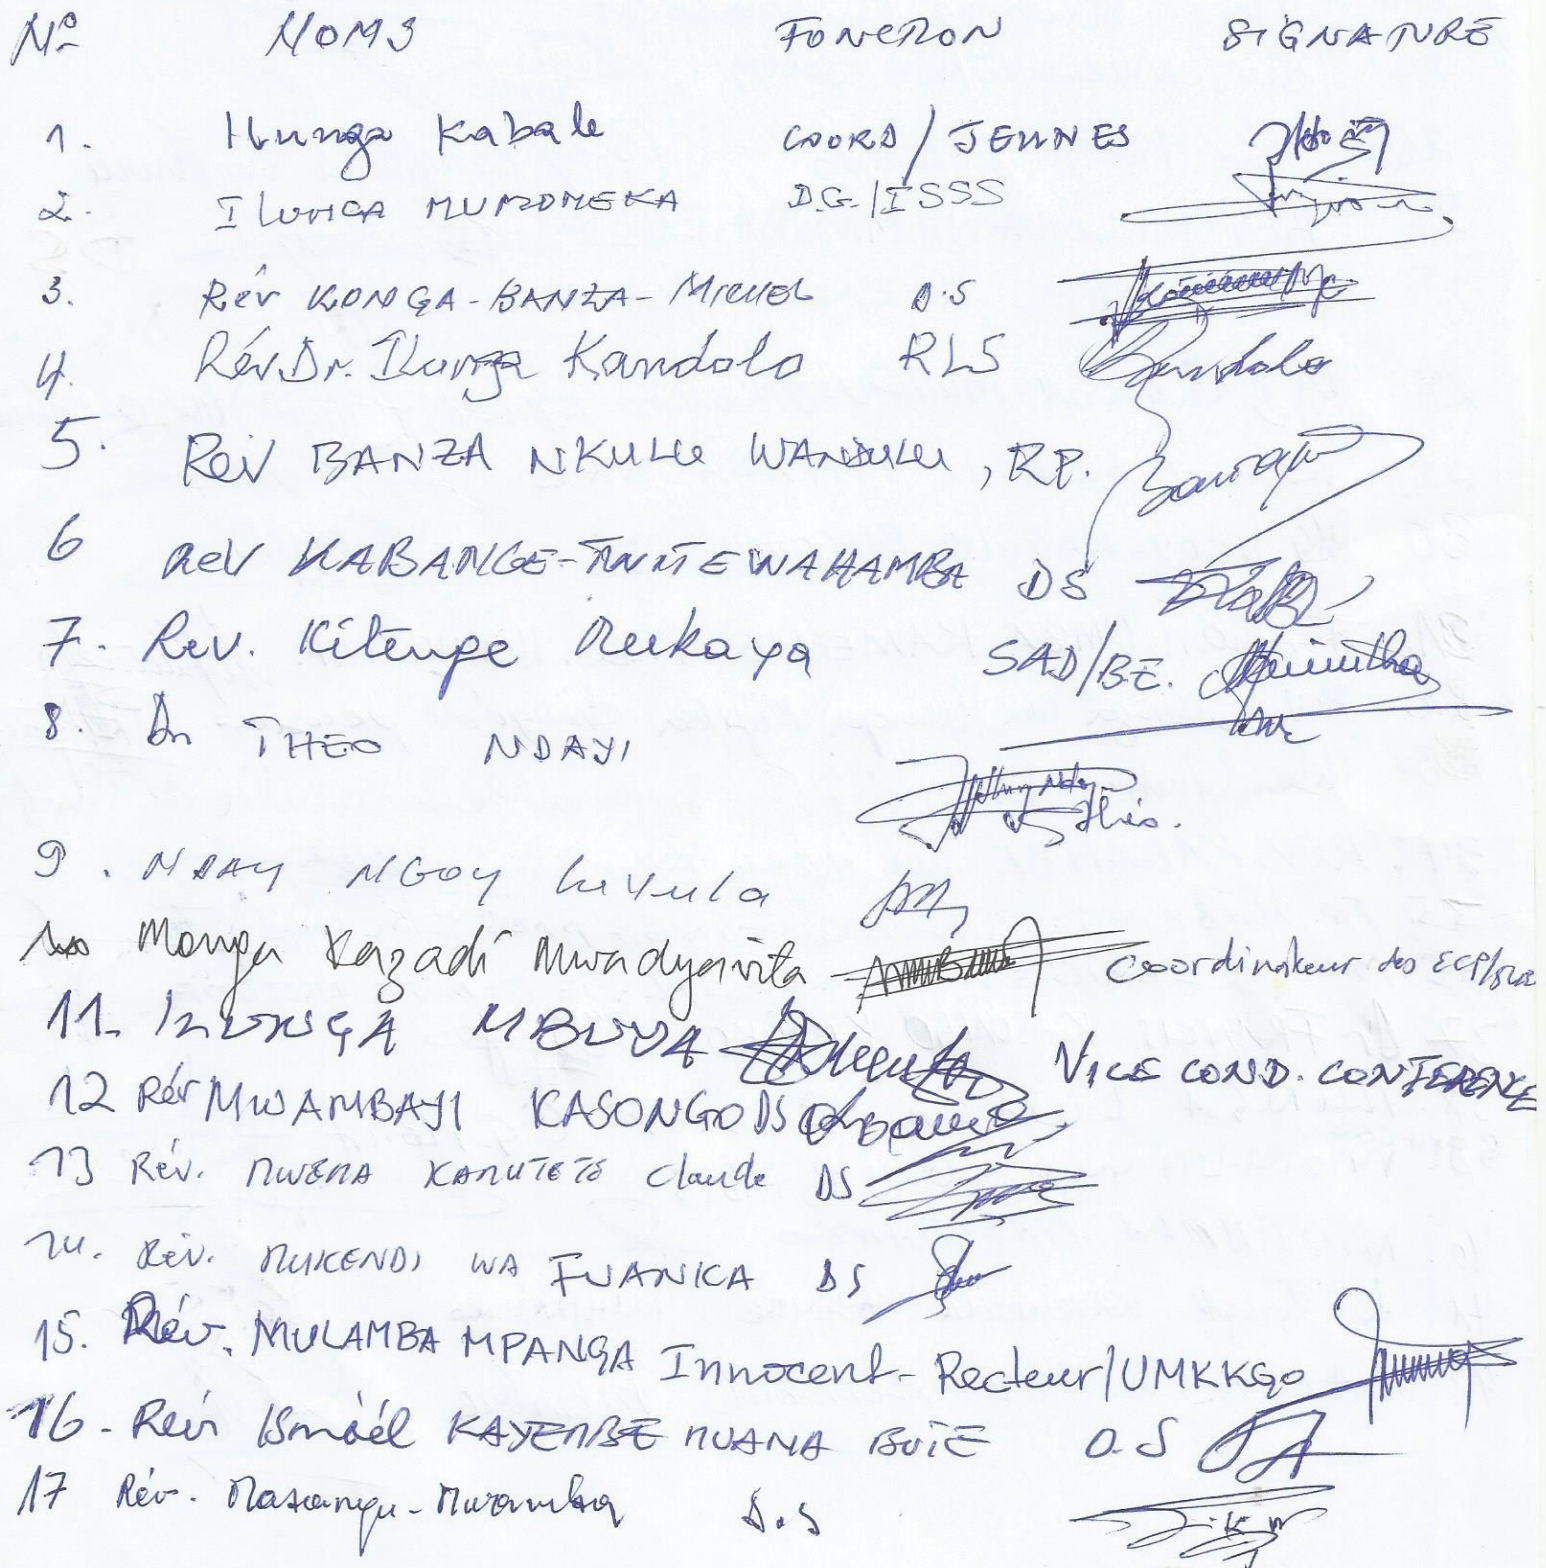 N° NOMS FONCTION SIGNATURE
1. Ilunga Kabale COORD/JEUNES
2. Ilunga MUMOMEKA D.G./ISSS
3. Rév KONGA-BANZA-MICHEL D.S
4. Rév Dr. Ilunga Kandolo RLS Kandolo
5. Rév BANZA NKULU WANDULU, RP.
6 Rev KABANGE-NTITEWAHAMBA DS
7. Rev. Kitenge Mukaya SAD/BE.
8. Dr THEO NDAYI
9. NDAY NGOY Luvula
10 Monga Kazadi Mwadyavita Coordinateur des ECP/
11. ILUNGA MBUYA VICE COND. CONFERENCE
12 Rév MWAMBAYI KASONGO DS
13 Rév. MWEMA KAMUTETE Claude DS
14. Rév. MUKENDI WA FUANKA DS
15. Rév. MULAMBA MPANGA Innocent-Recteur/UMKKGO
16. Rév Ismaël KAYEMBE MUANA BUTE D.S
17 Rév. Masangu-Mwamba D.S